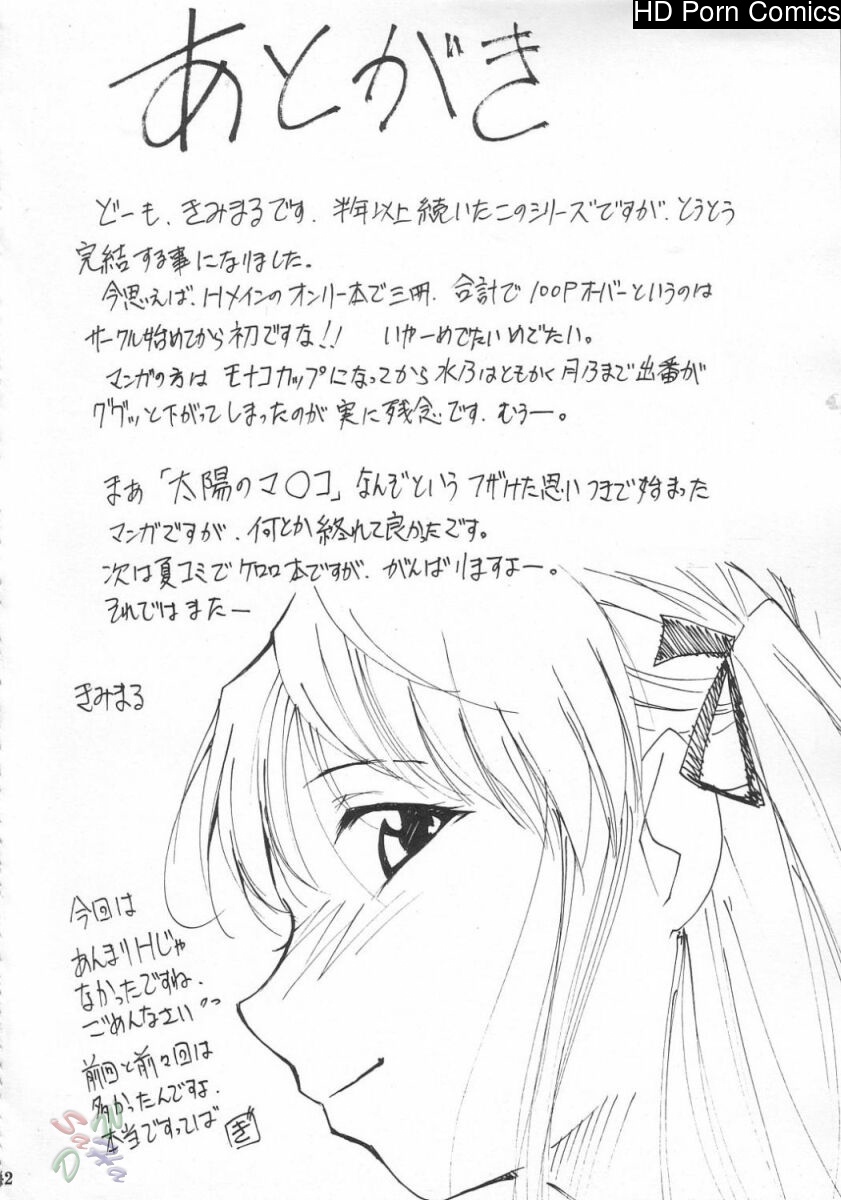 HD Porn Comics
あとがき
どーも、きみまるです。半年以上続いたこのシリーズですが、とうとう
完結する事になりました。
今思えば、Hメインのオンリー本で三冊、合計で100Pオーバーというのは
サークル始めてから初ですな!! いやーめでたいめでたい。
マンガの方はモナコカップになってから水乃はともかく月乃まで出番が
ググッと下がってしまったのが実に残念です、むぅー。
まぁ「太陽のマ○コ」なんぞというフザけた思いつきで始まった
マンガですが、何とか終れて良かったです。
次は夏コミでケロロ本ですが、がんばりますよー。
それではまたー
きみまる
今回は
あんまりHじゃ
なかったですね、
ごめんなさい
前回と前々回は
多かったんですよ、
本当ですってば
42